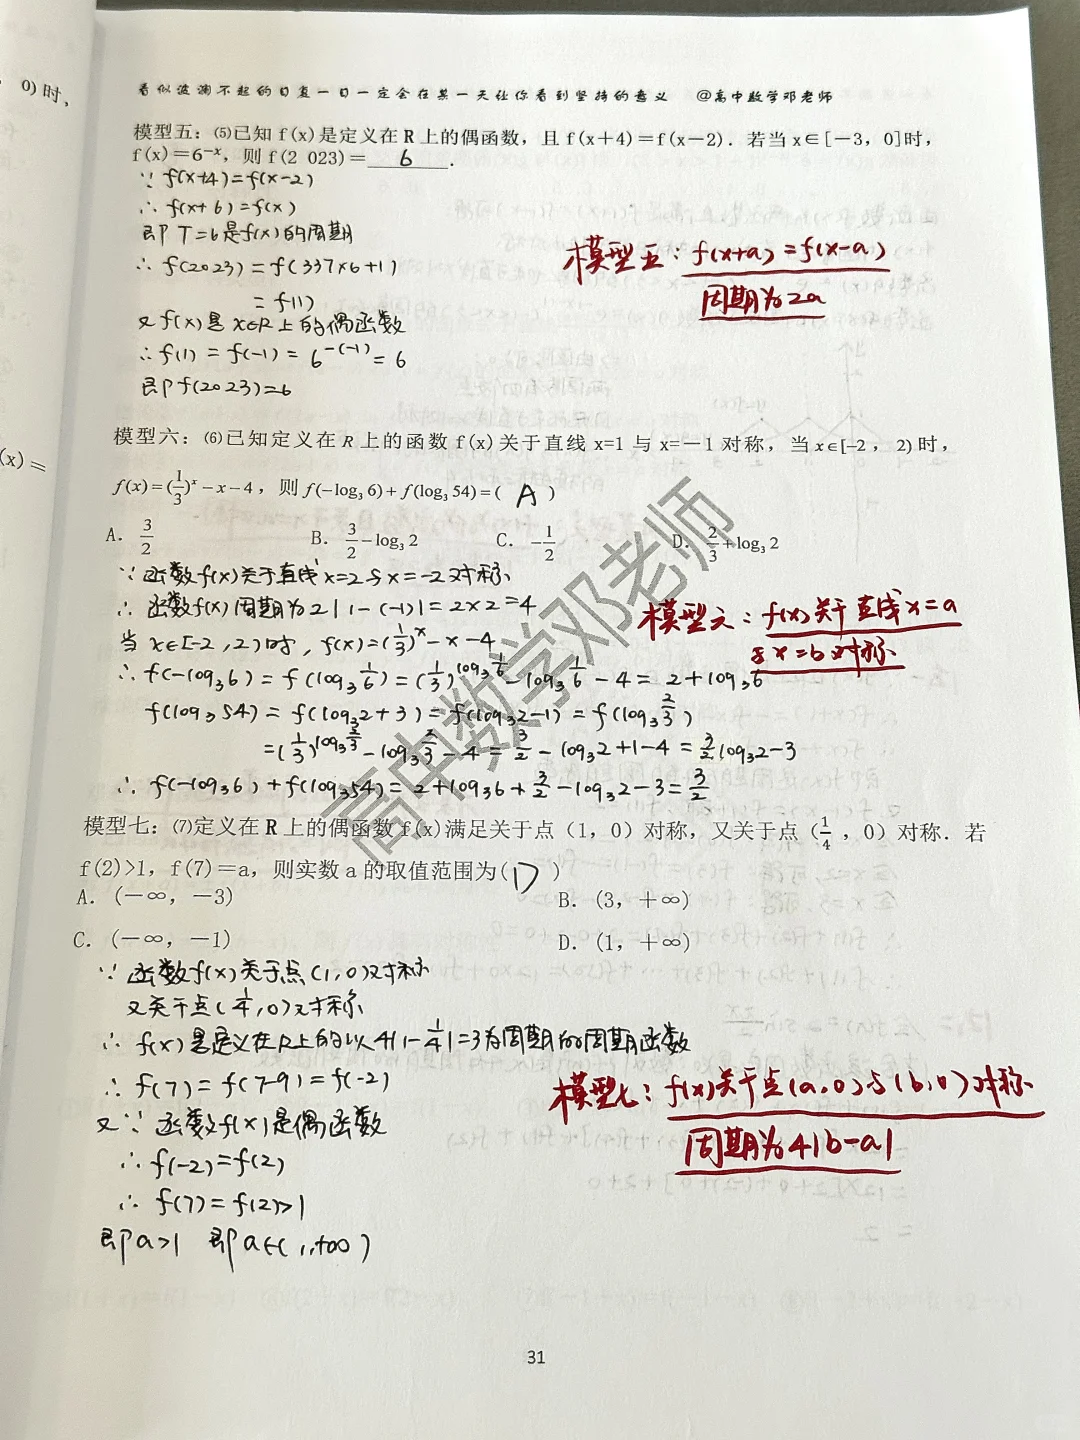 0)时，
(x)＝
看似波澜不起的日复一日一定会在某一天让你看到坚持的意义 @高中数学邓老师
模型五：⑸已知 f(x)是定义在 R 上的偶函数，且 f(x＋4)＝f(x－2)．若当 x∈[－3，0]时，
f(x)＝6⁻ˣ，则 f(2 023)＝ 6 ．
∵ f(x+4)=f(x-2)
∴ f(x+6)=f(x)
即 T=6是f(x)的周期
∴ f(2023)=f(337×6+1)
=f(1)
又f(x)是x∈R上的偶函数
∴f(1)=f(-1)=6^{-(-1)}=6
即f(2023)=6
模型五：f(x+a)=f(x-a)
周期为2a
模型六：⑹已知定义在 R 上的函数 f(x)关于直线 x=1 与 x=－1 对称，当 x∈[-2，2)时，
f(x)=(1/3)ˣ-x-4，则 f(-log₃6)+f(log₃54)=( A )
A．3/2 B．3/2-log₃2 C．-1/2 D．2/3+log₃2
∵函数f(x)关于直线x=2与x=-2对称
∴函数f(x)周期为2|1-(-1)|=2×2=4
当x∈[-2,2)时，f(x)=(1/3)ˣ-x-4
∴f(-log₃6)=f(log₃1/6)=(1/3)^{log₃1/6}-log₃1/6-4=2+log₃6
f(log₃54)=f(log₃2+3)=f(log₃2-1)=f(log₃2/3)
=(1/3)^{log₃2/3}-log₃2/3-4=3/2-log₃2+1-4=3/2log₃2-3
∴f(-log₃6)+f(log₃54)=2+log₃6+3/2-log₃2-3=3/2
模型六：f(x)关于直线x=a
与x=b对称
模型七：⑺定义在 R 上的偶函数 f(x)满足关于点（1，0）对称，又关于点（1/4，0）对称．若
f(2)>1，f(7)＝a，则实数 a 的取值范围为( D )
A．(－∞，－3) B．(3，＋∞)
C．(－∞，－1) D．(1，＋∞)
∵函数f(x)关于点(1,0)对称
又关于点(1/4,0)对称
∴f(x)是定义在R上的以4|1-1/4|=3为周期的周期函数
∴f(7)=f(7-9)=f(-2)
又∵函数f(x)是偶函数
∴f(-2)=f(2)
∴f(7)=f(2)>1
即a>1 即a∈(1,+∞)
模型七：f(x)关于点(a,0)与(b,0)对称
周期为4|b-a|
高中数学邓老师
31